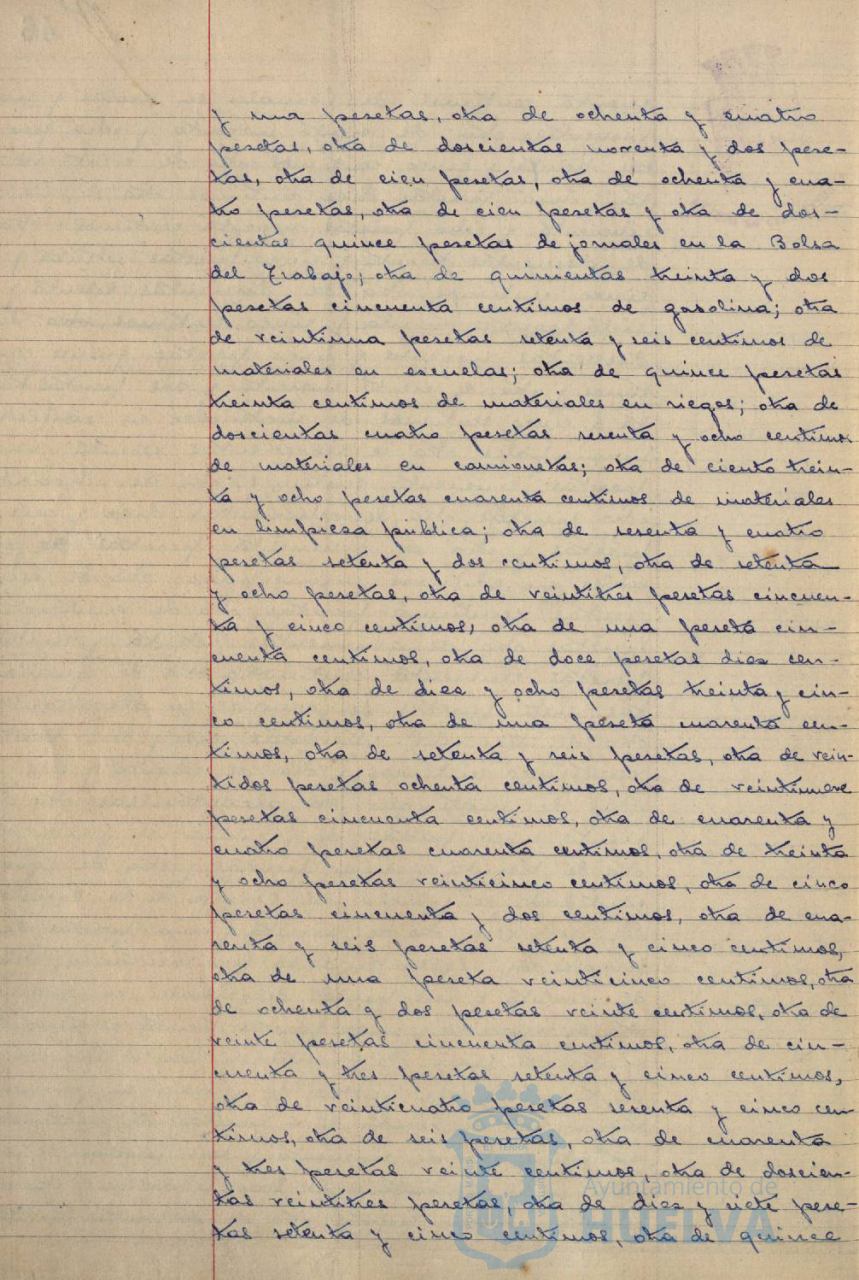 y una pesetas, otra de ochenta y cuatro
pesetas, otra de doscientas noventa y dos pese-
tas, otra de cien pesetas, otra de ochenta y cua-
tro pesetas, otra de cien pesetas y otra de dos-
cientas quince pesetas de jornales en la Bolsa
del Trabajo; otra de quinientas treinta y dos
pesetas cincuenta centimos de gasolina; otra
de veintiuna pesetas setenta y seis centimos de
materiales en escuelas; otra de quince pesetas
treinta centimos de materiales en riegos; otra de
doscientas cuatro pesetas sesenta y ocho centimos
de materiales en camionetas; otra de ciento trein-
ta y ocho pesetas cuarenta centimos de materiales
en limpieza pública; otra de sesenta y cuatro
pesetas setenta y dos centimos, otra de setenta
y ocho pesetas, otra de veintitres pesetas cincuen-
ta y cinco centimos, otra de una peseta cin-
cuenta centimos, otra de doce pesetas diez cen-
timos, otra de diez y ocho pesetas treinta y cin-
co centimos, otra de una peseta cuarenta cen-
timos, otra de setenta y seis pesetas, otra de vein-
tidos pesetas ochenta centimos, otra de veintinueve
pesetas cincuenta centimos, otra de cuarenta y
cuatro pesetas cuarenta centimos, otra de treinta
y ocho pesetas veinticinco centimos, otra de cinco
pesetas cincuenta y dos centimos, otra de cua-
renta y seis pesetas setenta y cinco centimos,
otra de una peseta veinticinco centimos, otra
de ochenta y dos pesetas veinte centimos, otra de
veinte pesetas cincuenta centimos, otra de cin-
cuenta y tres pesetas setenta y cinco centimos,
otra de veinticuatro pesetas sesenta y cinco cen-
timos, otra de seis pesetas, otra de cuarenta
y tres pesetas veinte centimos, otra de doscien-
tas veintitres pesetas, otra de diez y siete pese-
tas setenta y cinco centimos, otra de quince
Ayuntamiento de
HUELVA